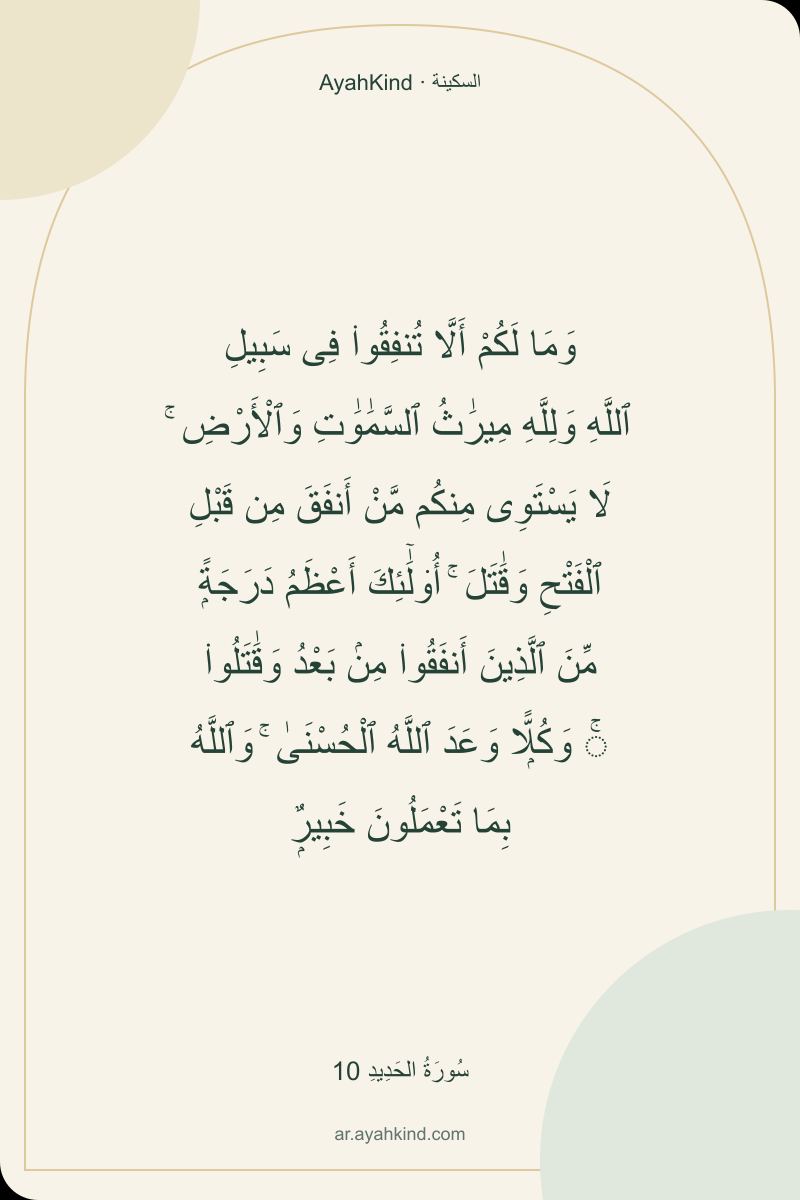 AyahKind · السكينة
وَمَا لَكُمْ أَلَّا تُنفِقُوا۟ فِى سَبِيلِ
ٱللَّهِ وَلِلَّهِ مِيرَٰثُ ٱلسَّمَٰوَٰتِ وَٱلْأَرْضِ ۚ
لَا يَسْتَوِى مِنكُم مَّنْ أَنفَقَ مِن قَبْلِ
ٱلْفَتْحِ وَقَٰتَلَ ۚ أُو۟لَٰٓئِكَ أَعْظَمُ دَرَجَةًۭ
مِّنَ ٱلَّذِينَ أَنفَقُوا۟ مِنۢ بَعْدُ وَقَٰتَلُوا۟
ۚ وَكُلًّۭا وَعَدَ ٱللَّهُ ٱلْحُسْنَىٰ ۚ وَٱللَّهُ
بِمَا تَعْمَلُونَ خَبِيرٌۭ
سُورَةُ الحَدِيدِ 10
ar.ayahkind.com